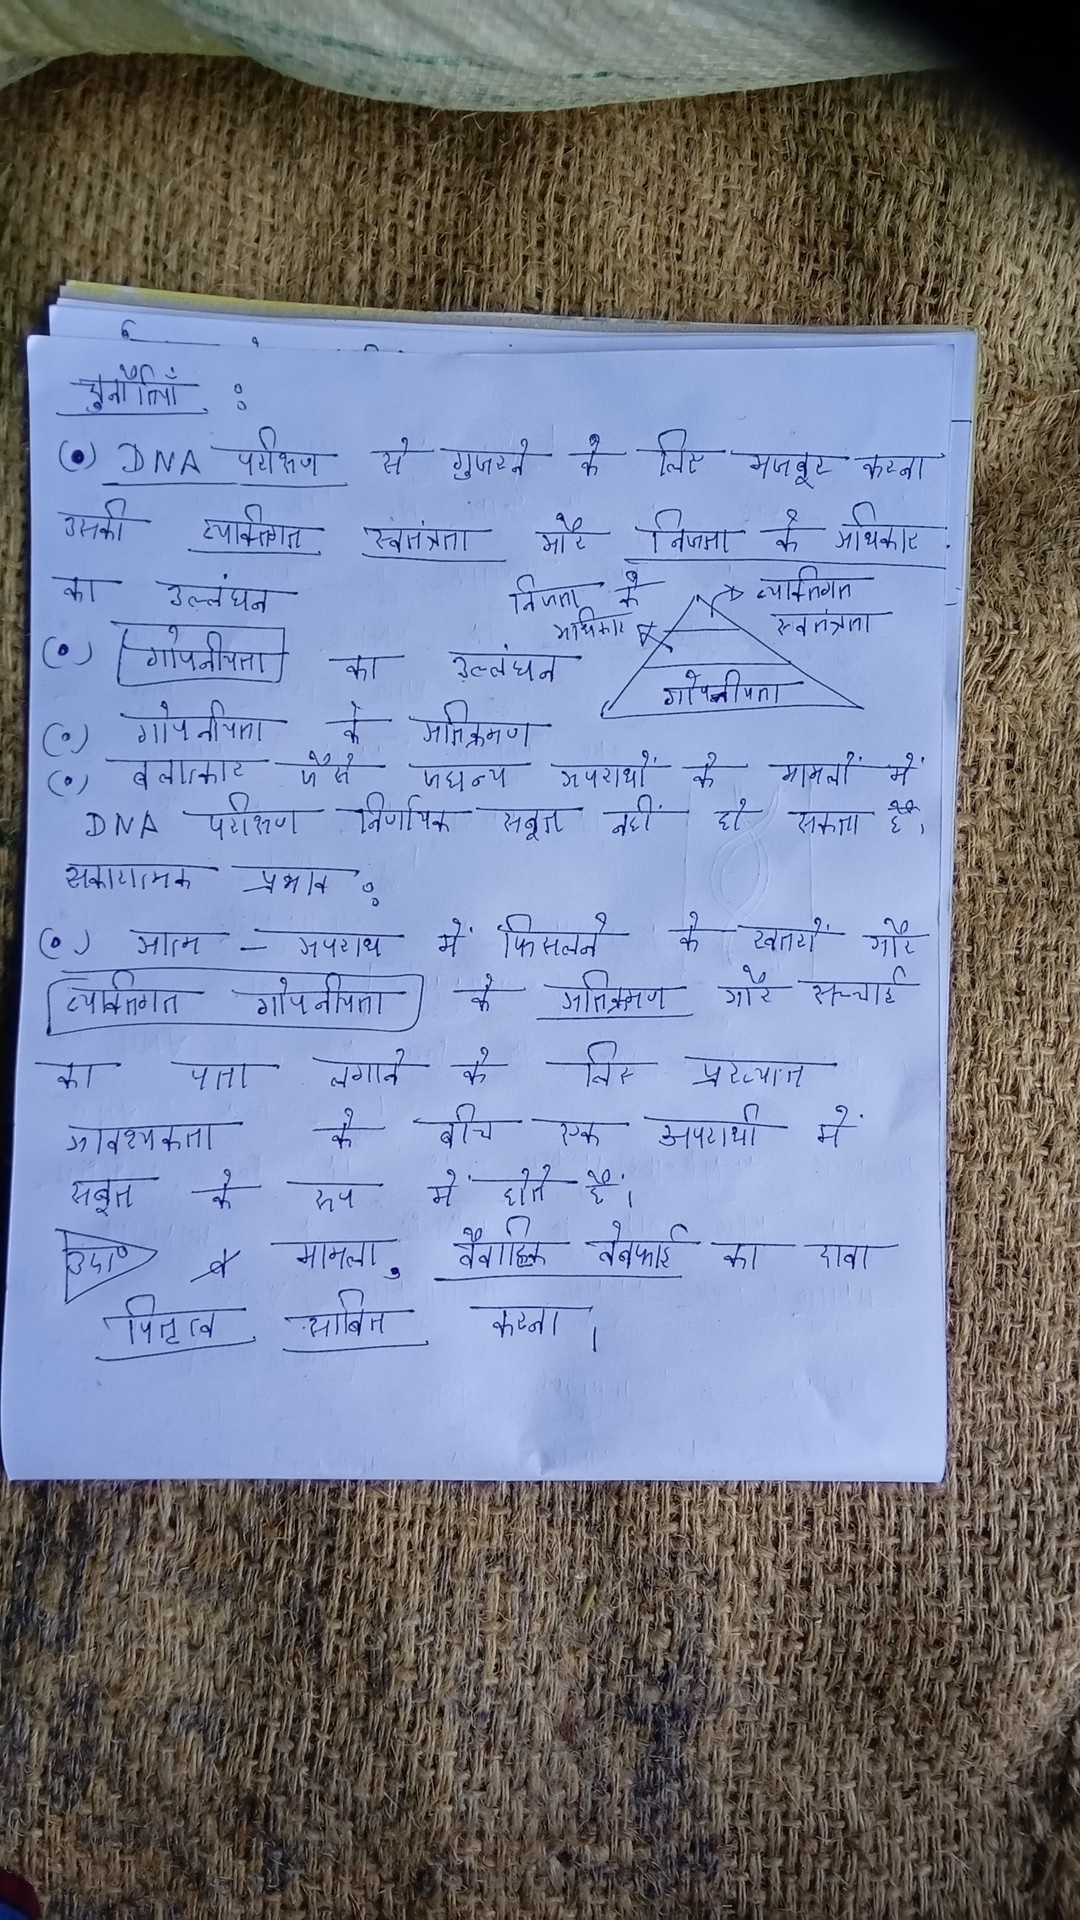 चुनौतियाँ :
(•) DNA परीक्षण से गुजरने के लिए मजबूर करना
उसकी व्यक्तिगत स्वतंत्रता और निजता के अधिकार
का उल्लंघन
निजता के अधिकार
व्यक्तिगत स्वतंत्रता
गोपनीयता
(•) गोपनीयता का उल्लंघन
(•) गोपनीयता के अतिक्रमण
(•) बलात्कार जैसे जघन्य अपराधों के मामलों में
DNA परीक्षण निर्णायक सबूत नहीं हो सकता है।
सकारात्मक प्रभाव :
(•) आत्म - अपराध में फिसलने के खतरों और
व्यक्तिगत गोपनीयता के अतिक्रमण और सच्चाई
का पता लगाने के लिए प्रख्यात
आवश्यकता के बीच एक अपराधी में
सबूत के रूप में होते हैं।
उदा० मामला, वैवाहिक बेवफाई का दावा
पितृत्व साबित करना।